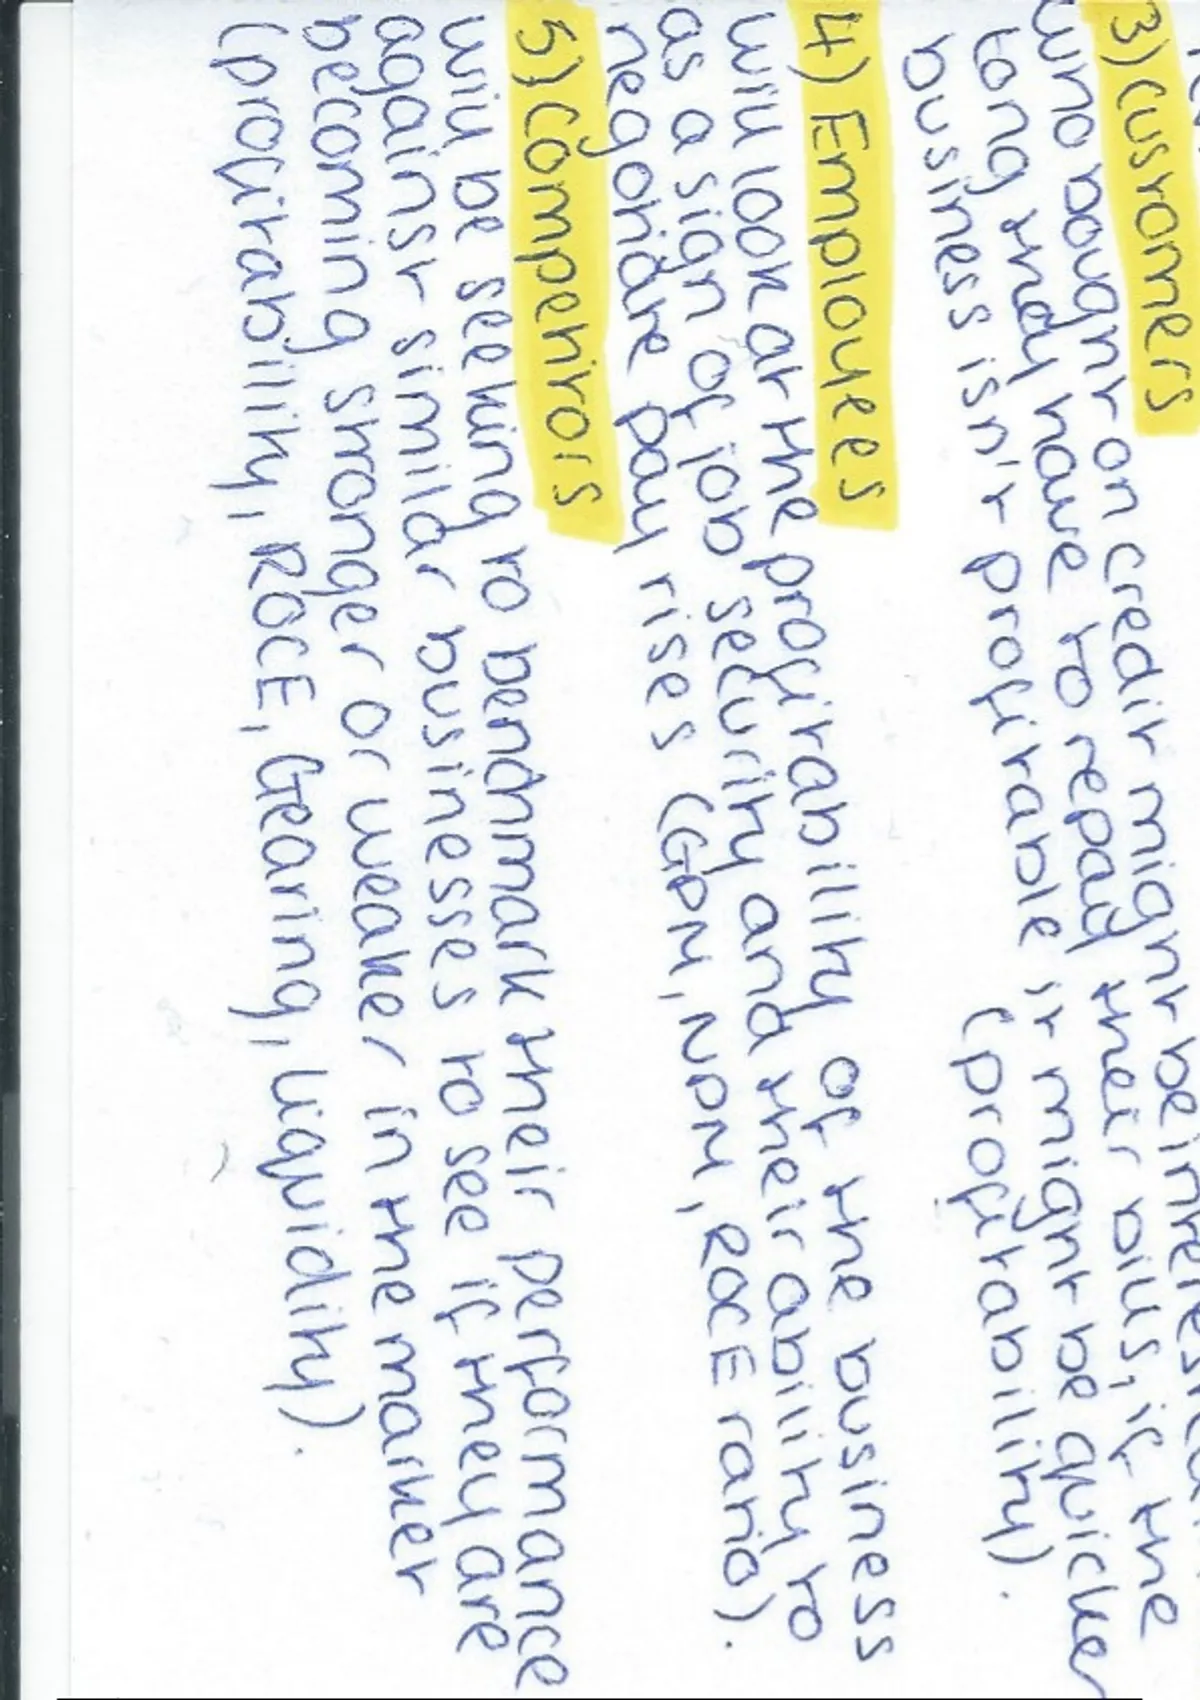 3) Customers
who bought on credit might be interested
long they have to repay their bills, if the
business isn't profitable it might be quicker
(profitability).
4) Employees
will look at the profitability of the business
as a sign of job security and their ability to
negotiate pay rises (GPM, NPM, ROCE ratio).
5) Competitors
will be seeking to benchmark their performance
against similar businesses to see if they are
becoming stronger or weaker in the market
(profitability, ROCE, Gearing, Liquidity).